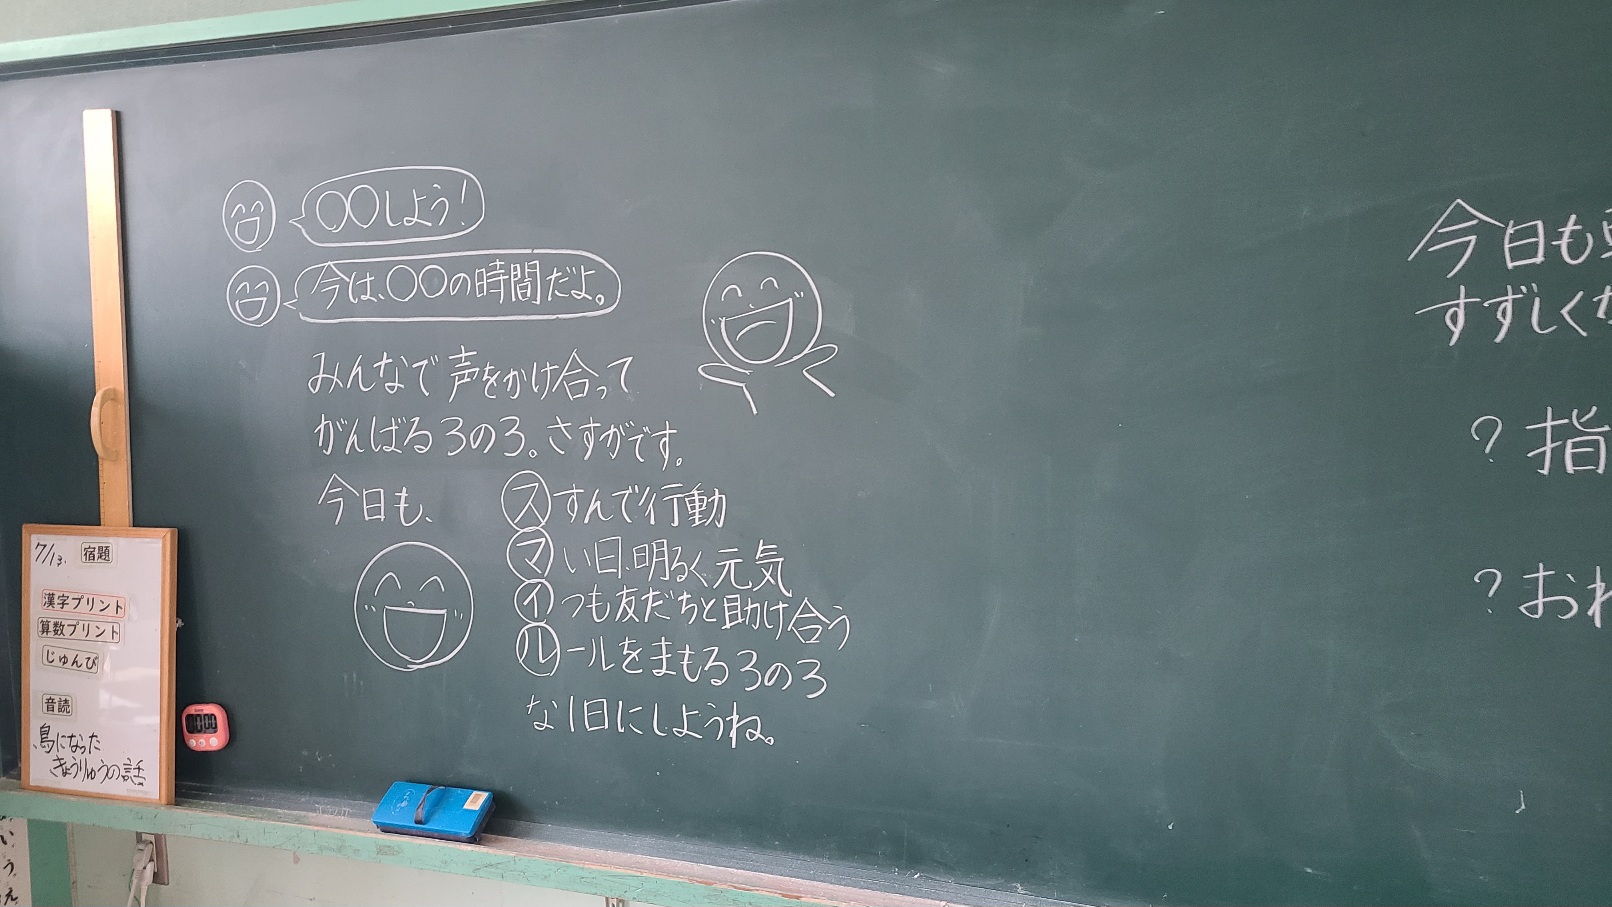 〇〇しよう!
今は、〇〇の時間だよ。
みんなで声をかけ合って
がんばる3の3。さすがです。
今日も、
スすんで行動
マい日明るく元気
イつも友だちと助け合う
ルールをまもる3の3
な1日にしようね。
今日も
すずしくな
? 指
? おわ
7/13. 宿題
漢字プリント
算数プリント
じゅんび
音読
鳥になった
きょうりゅうの話
い
う
え